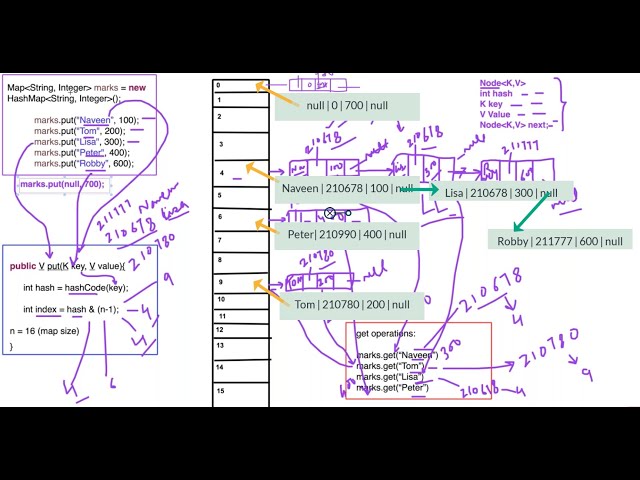 Map<String, Integer> marks = new
HashMap<String, Integer>();
marks.put("Naveen", 100);
marks.put("Tom", 200);
marks.put("Lisa", 300);
marks.put("Peter", 400);
marks.put("Robby", 600);
marks.put(null, 700);
211777 Naveen
210678 Lisa
210780
public V put(K key, V value){
int hash = hashCode(key);
int index = hash & (n-1);
n = 16 (map size)
}
9
4
4
4
6
0
1
2
3
4
5
6
7
8
9
10
11
12
13
14
15
null | 0 | 700 | null
210678
210678
null
211777
Naveen | 210678 | 100 | null
Lisa | 210678 | 300 | null
null
Peter | 210990 | 400 | null
Robby | 211777 | 600 | null
210780
null
Tom | 210780 | 200 | null
Node<K,V>
int hash
K key
V Value
Node<K,V> next;
get operations:
marks.get("Naveen")
marks.get("Tom")
marks.get("Lisa")
marks.get("Peter")
300
400
210678
4
210780
9
210678
4